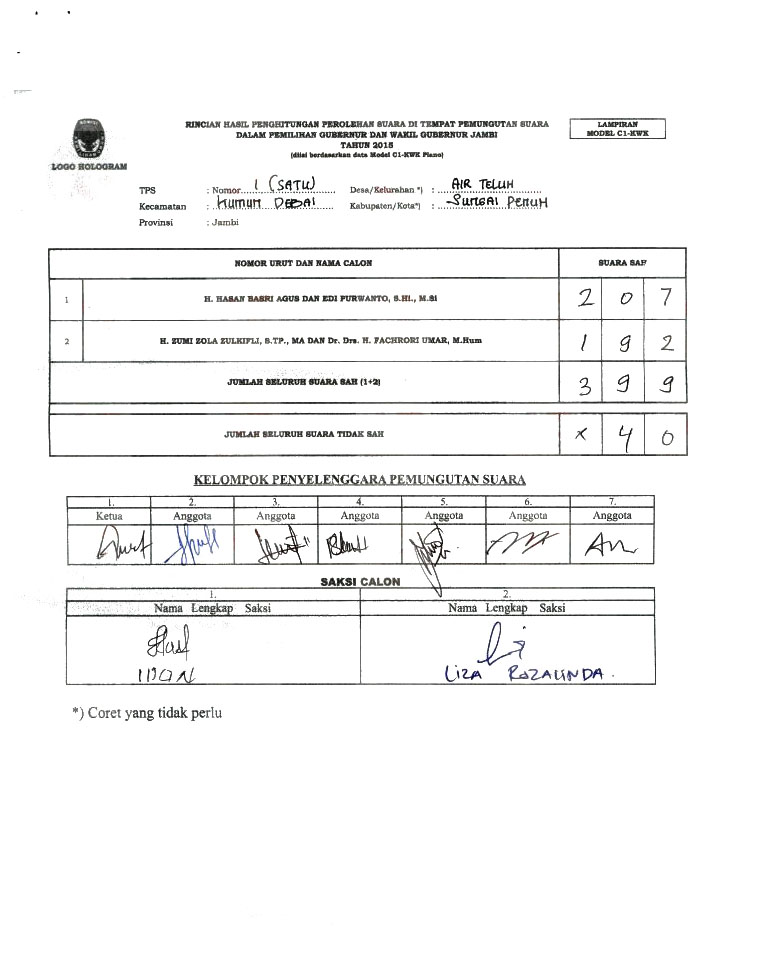 RINCIAN HASIL PENGHITUNGAN PEROLEHAN SUARA DI TEMPAT PEMUNGUTAN SUARA
DALAM PEMILIHAN GUBERNUR DAN WAKIL GUBERNUR JAMBI
TAHUN 2015
(diisi berdasarkan data Model C1-KWK Plano)
LAMPIRAN
MODEL C1-KWK
LOGO HOLOGRAM
TPS : Nomor 1 (SATU) Desa/Kelurahan *) : AIR TELUH
Kecamatan : KUMUN DEBAI Kabupaten/Kota*) : SUNGAI PENUH
Provinsi : Jambi
NOMOR URUT DAN NAMA CALON SUARA SAH
1 H. HASAN BASRI AGUS DAN EDI PURWANTO, S.HI., M.SI 2 0 7
2 H. ZUMI ZOLA ZULKIFLI, S.TP., MA DAN Dr. Drs. H. FACHRORI UMAR, M.Hum 1 9 2
JUMLAH SELURUH SUARA SAH (1+2) 3 9 9
JUMLAH SELURUH SUARA TIDAK SAH X 4 0
KELOMPOK PENYELENGGARA PEMUNGUTAN SUARA
1. 2. 3. 4. 5. 6. 7.
Ketua Anggota Anggota Anggota Anggota Anggota Anggota
SAKSI CALON
1. 2.
Nama Lengkap Saksi Nama Lengkap Saksi
LIZA ROZALINDA.
*) Coret yang tidak perlu